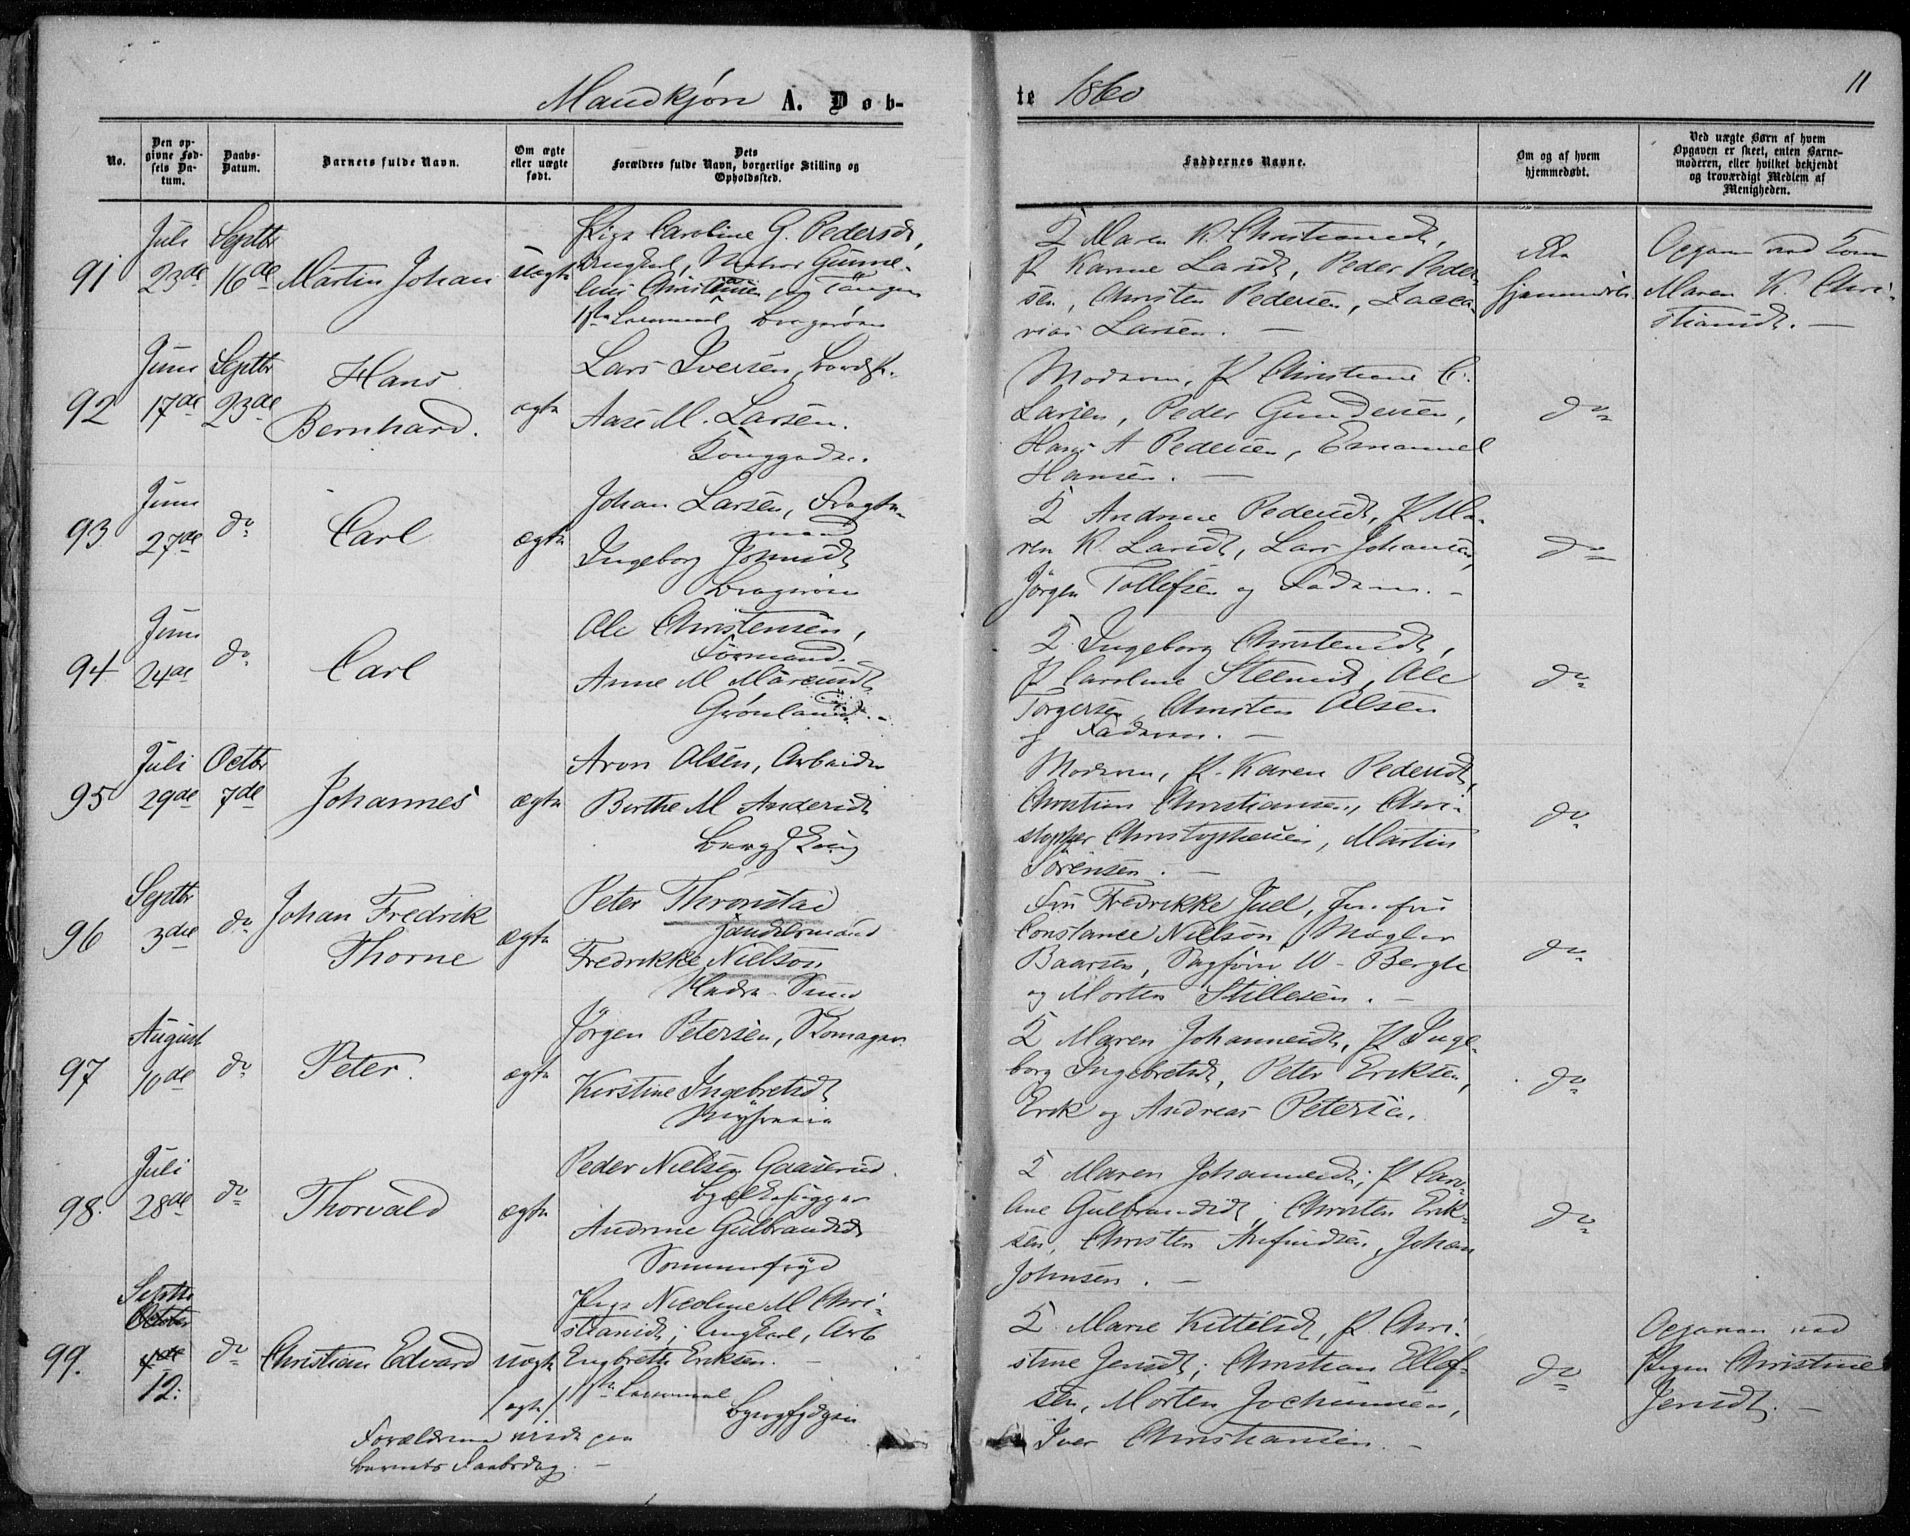 Mandkjøn A. Døb-
te 1860
11
No.
Den op-
givne Fød-
sels Da-
tum.
Daabs-
Datum.
Barnets fulde Navn.
Om ægte
eller uægte
født.
Dets
Forældres fulde Navn, borgerlige Stilling og
Opholdssted.
Faddernes Navne.
Om og af hvem
hjemmedøbt.
Ved uægte Børn af hvem
Opgaven er skeet, enten Barne-
moderen, eller hvilket bekjendt
og troværdigt Medlem af
Menigheden.
91
Juli
23de
Septbr
16de
Martin Johan
uægte
Pige Caroline G. Pedersdt,
Ungkarl, Gunne-
lius Christensen
1ste Leiermaal Bragerøen
K Maren K. Christiansdt,
P Karine Larsdt, Peder Peder-
sen, Christen Pedersen, Zacca-
rias Larsen. —
Maren K. Chri-
stiansdt. —
92
Juni
17de
Septbr
23de
Hans
Bernhard.
ægte
Lars Iversen,
Aase M. Larsen.
Konggaden.
Moderen, P Christiane C.
Larsen, Peder Gundersen,
Hans A Pedersen, Emanuel
Hansen. —
do
93
Juni
27de
do
Carl
ægte
Johan Larsen, Fragte-
mand
Ingeborg Jonsdt
Bragerøen
K Andrine Pedersdt, P Ma-
ren K. Larsdt, Lars Johansen,
Jörgen Tollefsen og Faderen. -
do
94
Juni
24de
do
Carl
Ole Christensen,
Formand.
Anne M
Grönland. -
K Ingeborg Christensdt,
P Caroline Steensdt, Ole
Torgersen, Christen Olsen
og Faderen. —
do
95
Juli
29de
Octbr
7de
Johannes
ægte
Aron Olsen, Arbeider
Berthe M Andersdt
Moderen, P. Karen Pedersdt,
Christian Christiansen, Chri-
stopher Christophersen, Martin
Sörensen. —
do
96
Septbr
3die
do
Johan Fredrik
Thorne
ægte
Peter Thronstad
Handelsmand
Fredrikke Nielsen
Fru Fredrikke Juel, Jomfru
Constance Nielson, Mægler
Baarsen, Sagfører W. Bergh
og Morten Stillesen. —
do
97
August
10de
do
Peter.
ægte
Jörgen Petersen, Skomager
Kirstine Ingebretsdt
K Maren Johannesdt, P Inge-
borg Ingebretsdt, Peter Eriksen,
Erik og Andreas Petersen.
do
98.
Juli
28de
do
Thorvald
ægte
Peder Nielsen Gaaserud.
Andrine Gulbrandsdt
Sommerfryd
K Maren Johannesdt, P Caro-
line Gulbrandsdt, Christen Erik-
sen, Christen Arfindsen, Johan
Johnsen. —
do
99.
Septbr
October
4de
12.
do
Christian Edvard
uægte
/ægte/
Pige Nicoline M Chri-
stiansdt; Ungkarl, Arb
Engbreth Eriksen. —
1ste Leiermaal
Forældrene viede paa
Barnets Daabsdag. —
K Marie Kittilsdt, P. Chri-
stine Jensdt, Christian Ellef-
sen, Morten Jochumsen,
Iver Christiansen. -
do
Opgaven ved
Pigen Christine
Jensdt. —